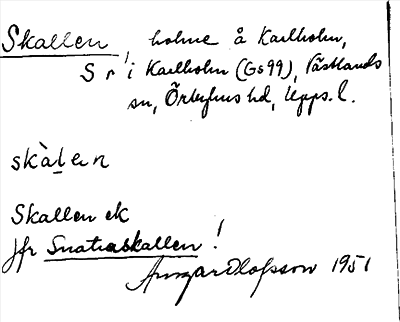 Skallen, holme å Karlholm,
S r i Karlholm (Gs 99), Västlands
sn, Örbyhus hd, Upps. l.
skàḷen
Skallen ek
jfr Snatraskallen!
Ansgar Olofsson 1951